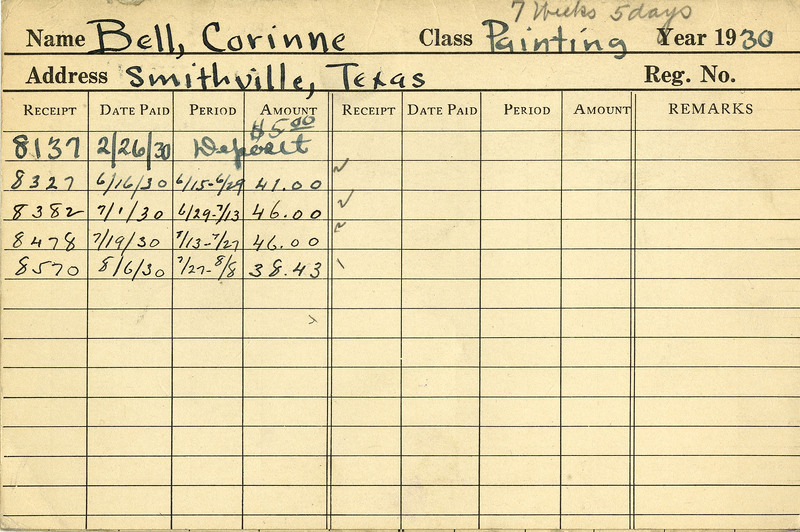 7 Weeks 5 days
Name Bell, Corinne Class Painting Year 1930
Address Smithville, Texas Reg. No.
RECEIPT DATE PAID PERIOD AMOUNT RECEIPT DATE PAID PERIOD AMOUNT REMARKS
$5.00
8137 2/26/30 Deposit
8327 6/16/30 6/15-6/29 41.00
8382 7/1/30 6/29-7/13 46.00
8478 7/19/30 7/13-7/27 46.00
8570 8/6/30 7/27-8/8 38.43